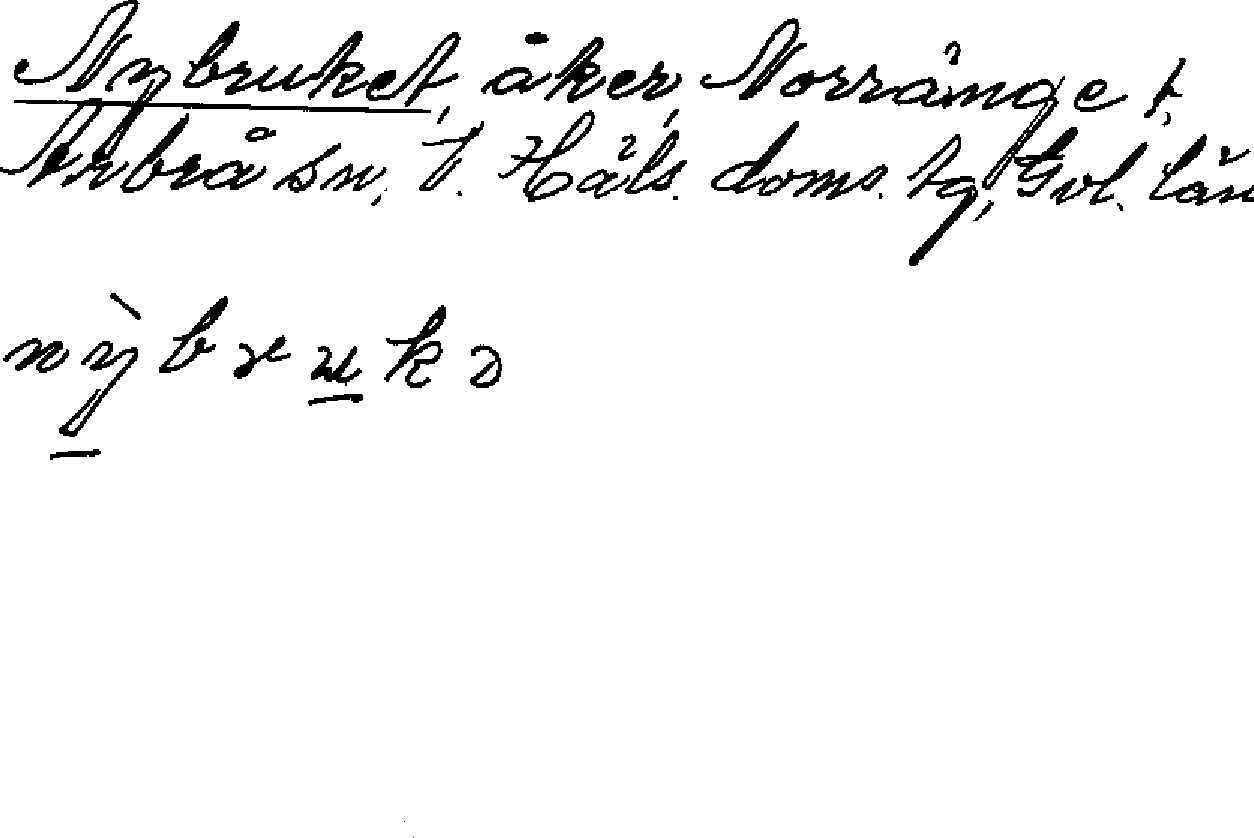 Nybruket, åker, Norränget,
Arbrå sn, V. Häls. doms. tg, Gvl. län
nỳbrukə